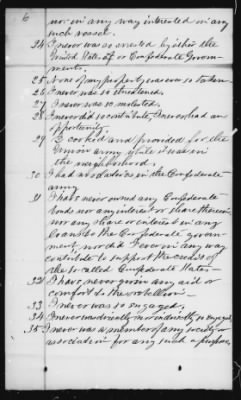 6
nor in any way interested in any
such vessel.
24 I never was so arrested by either the
United States or Confederate Govern-
ments.
25 None of my property was ever so taken.
26 I never was so threatened.
27 I never was so molested.
28 I never did so contribute, I never had an
opportunity.
29 I cooked and provided for the
Union army while it was in
the neighborhood.
30 I had no relatives in the Confederate
army
31 I have never owned any Confederate
bonds nor any interest or share therein,
nor any share or interest in any
loans to the Confederate govern-
ment, nor did I ever in any way
contribute to support the credit of
the so called Confederate States—
32 I have never given any aid or
comfort to the rebellion—
33 I never was so engaged,
34 I never was directly nor indirectly so engaged
35 I never was a member of any society or
association for any such a purpose,